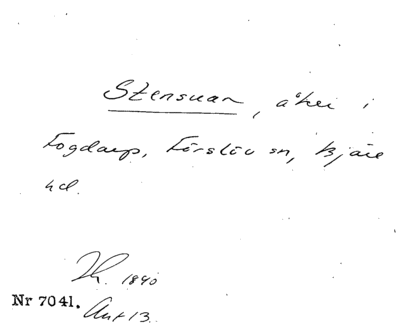 Stensvar, åker i
Fogdarp, Förslöv sn, Bjäre
hd.
Lh. 1840
Nr 7041. Akt 13.